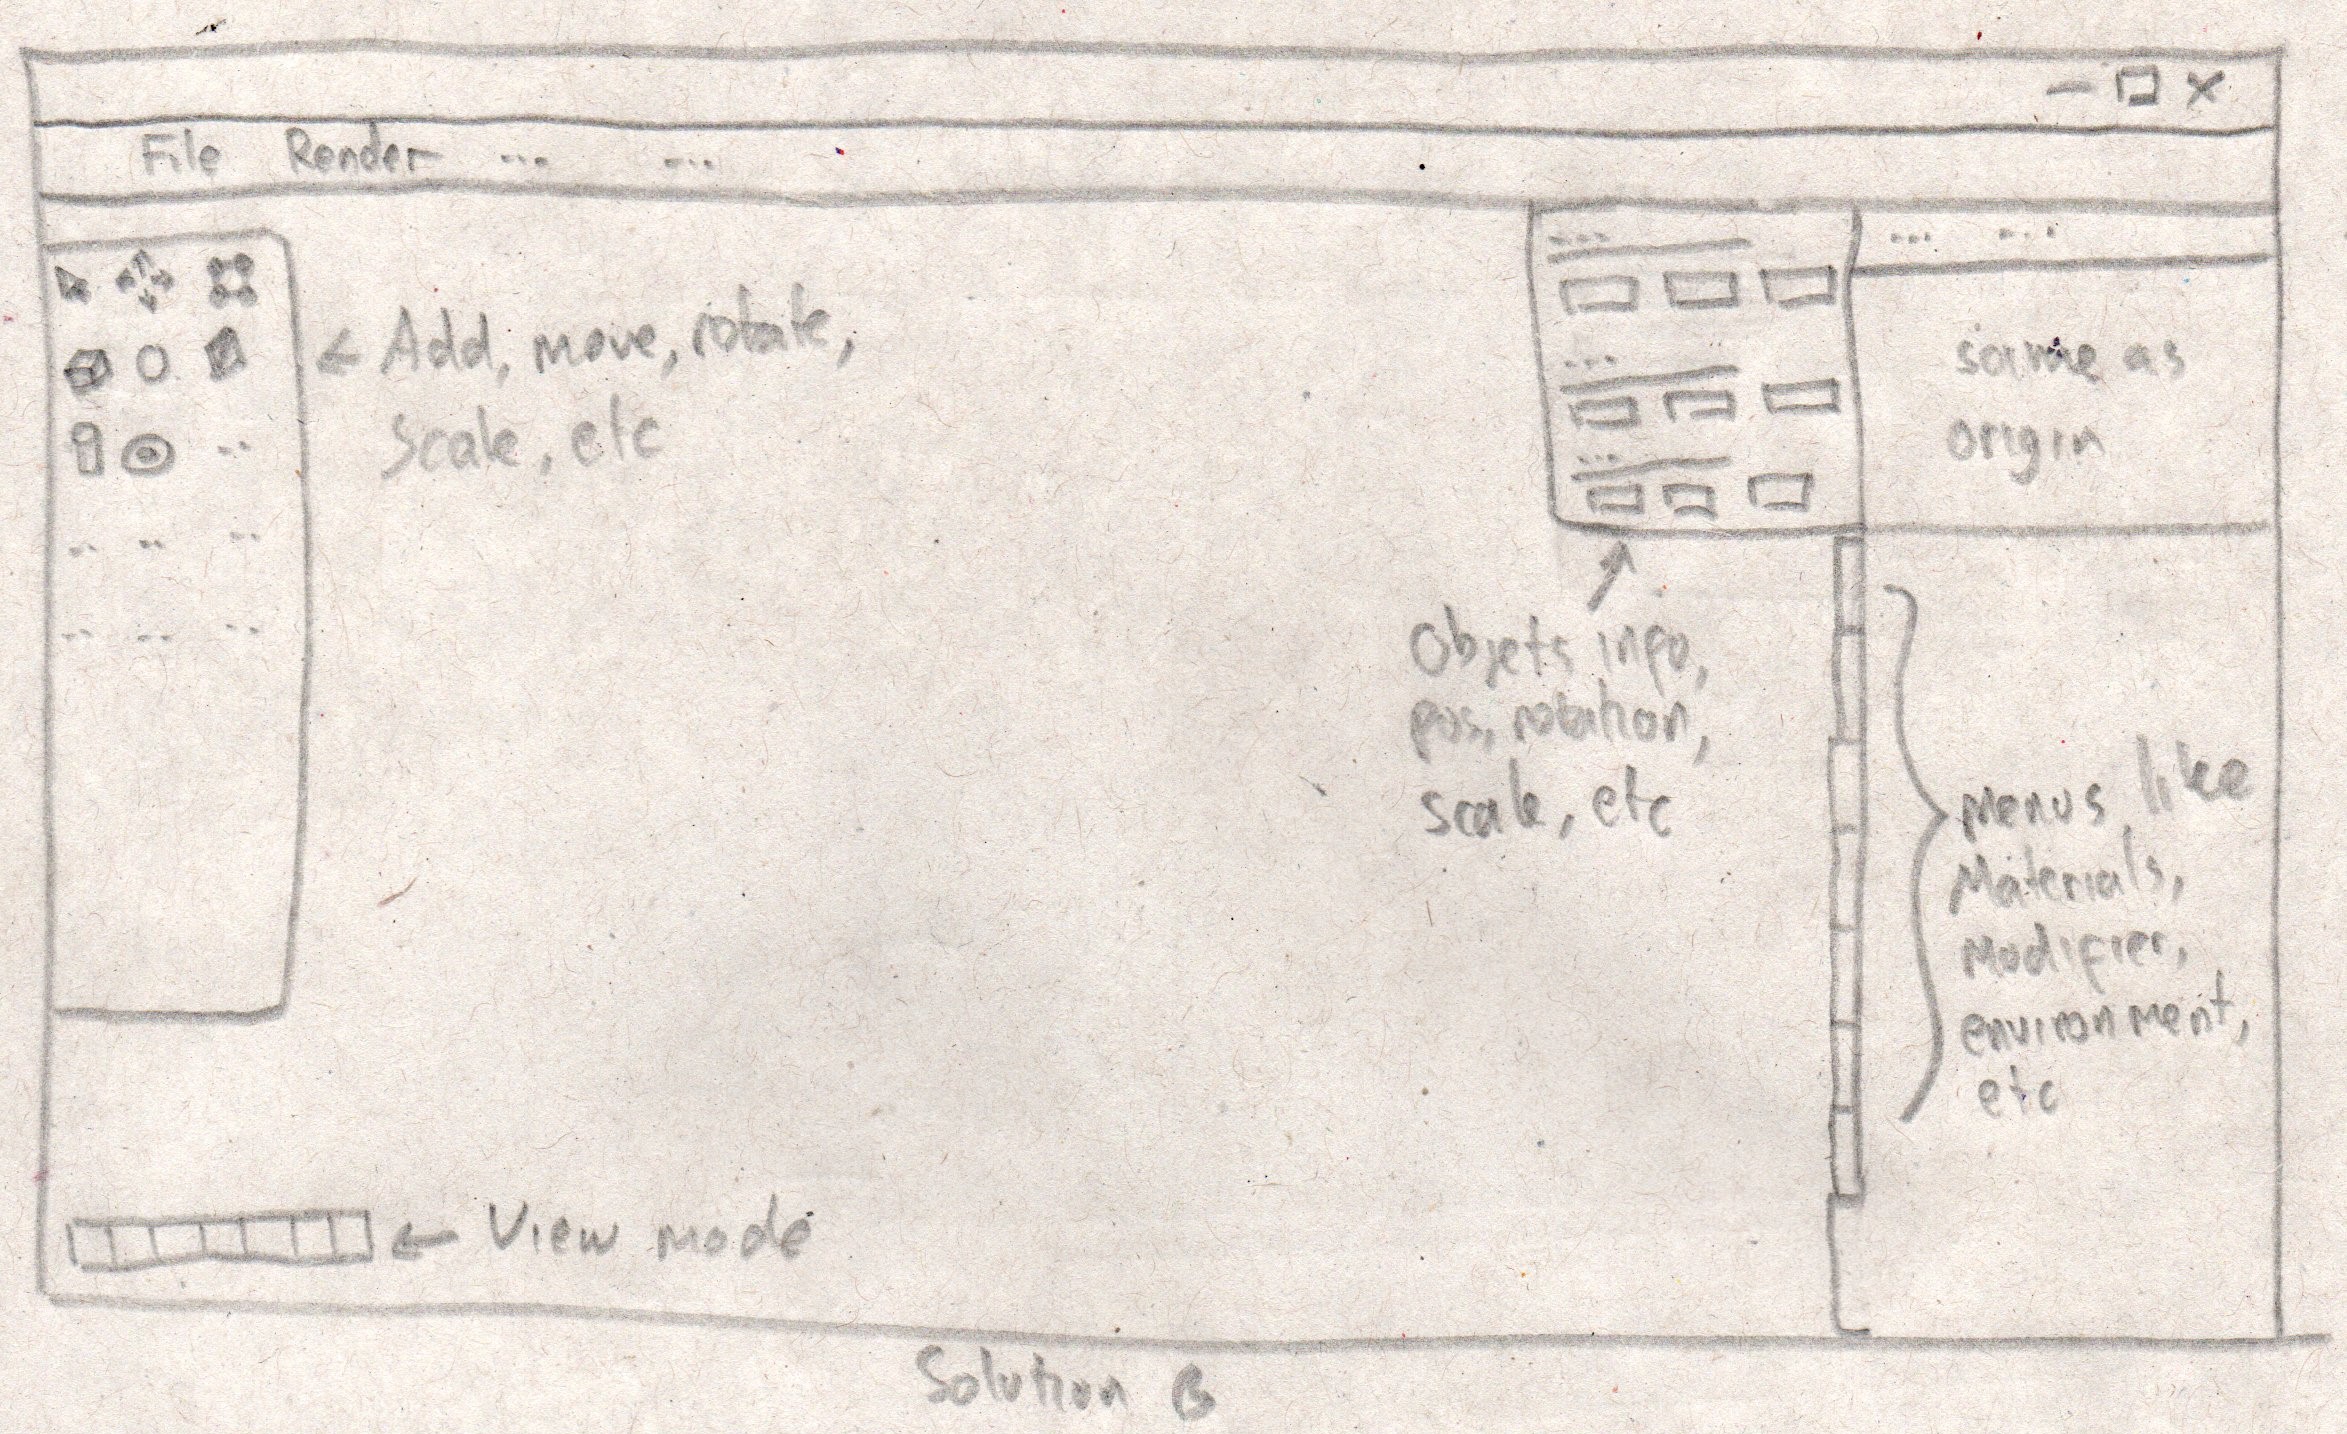 File Render ... ...
... ...
Add, move, rotate,
scale, etc
same as
origin
Objets info,
pos, rotation,
scale, etc
menus, like
Materials,
Modifier,
environment,
etc
View mode
Solution B